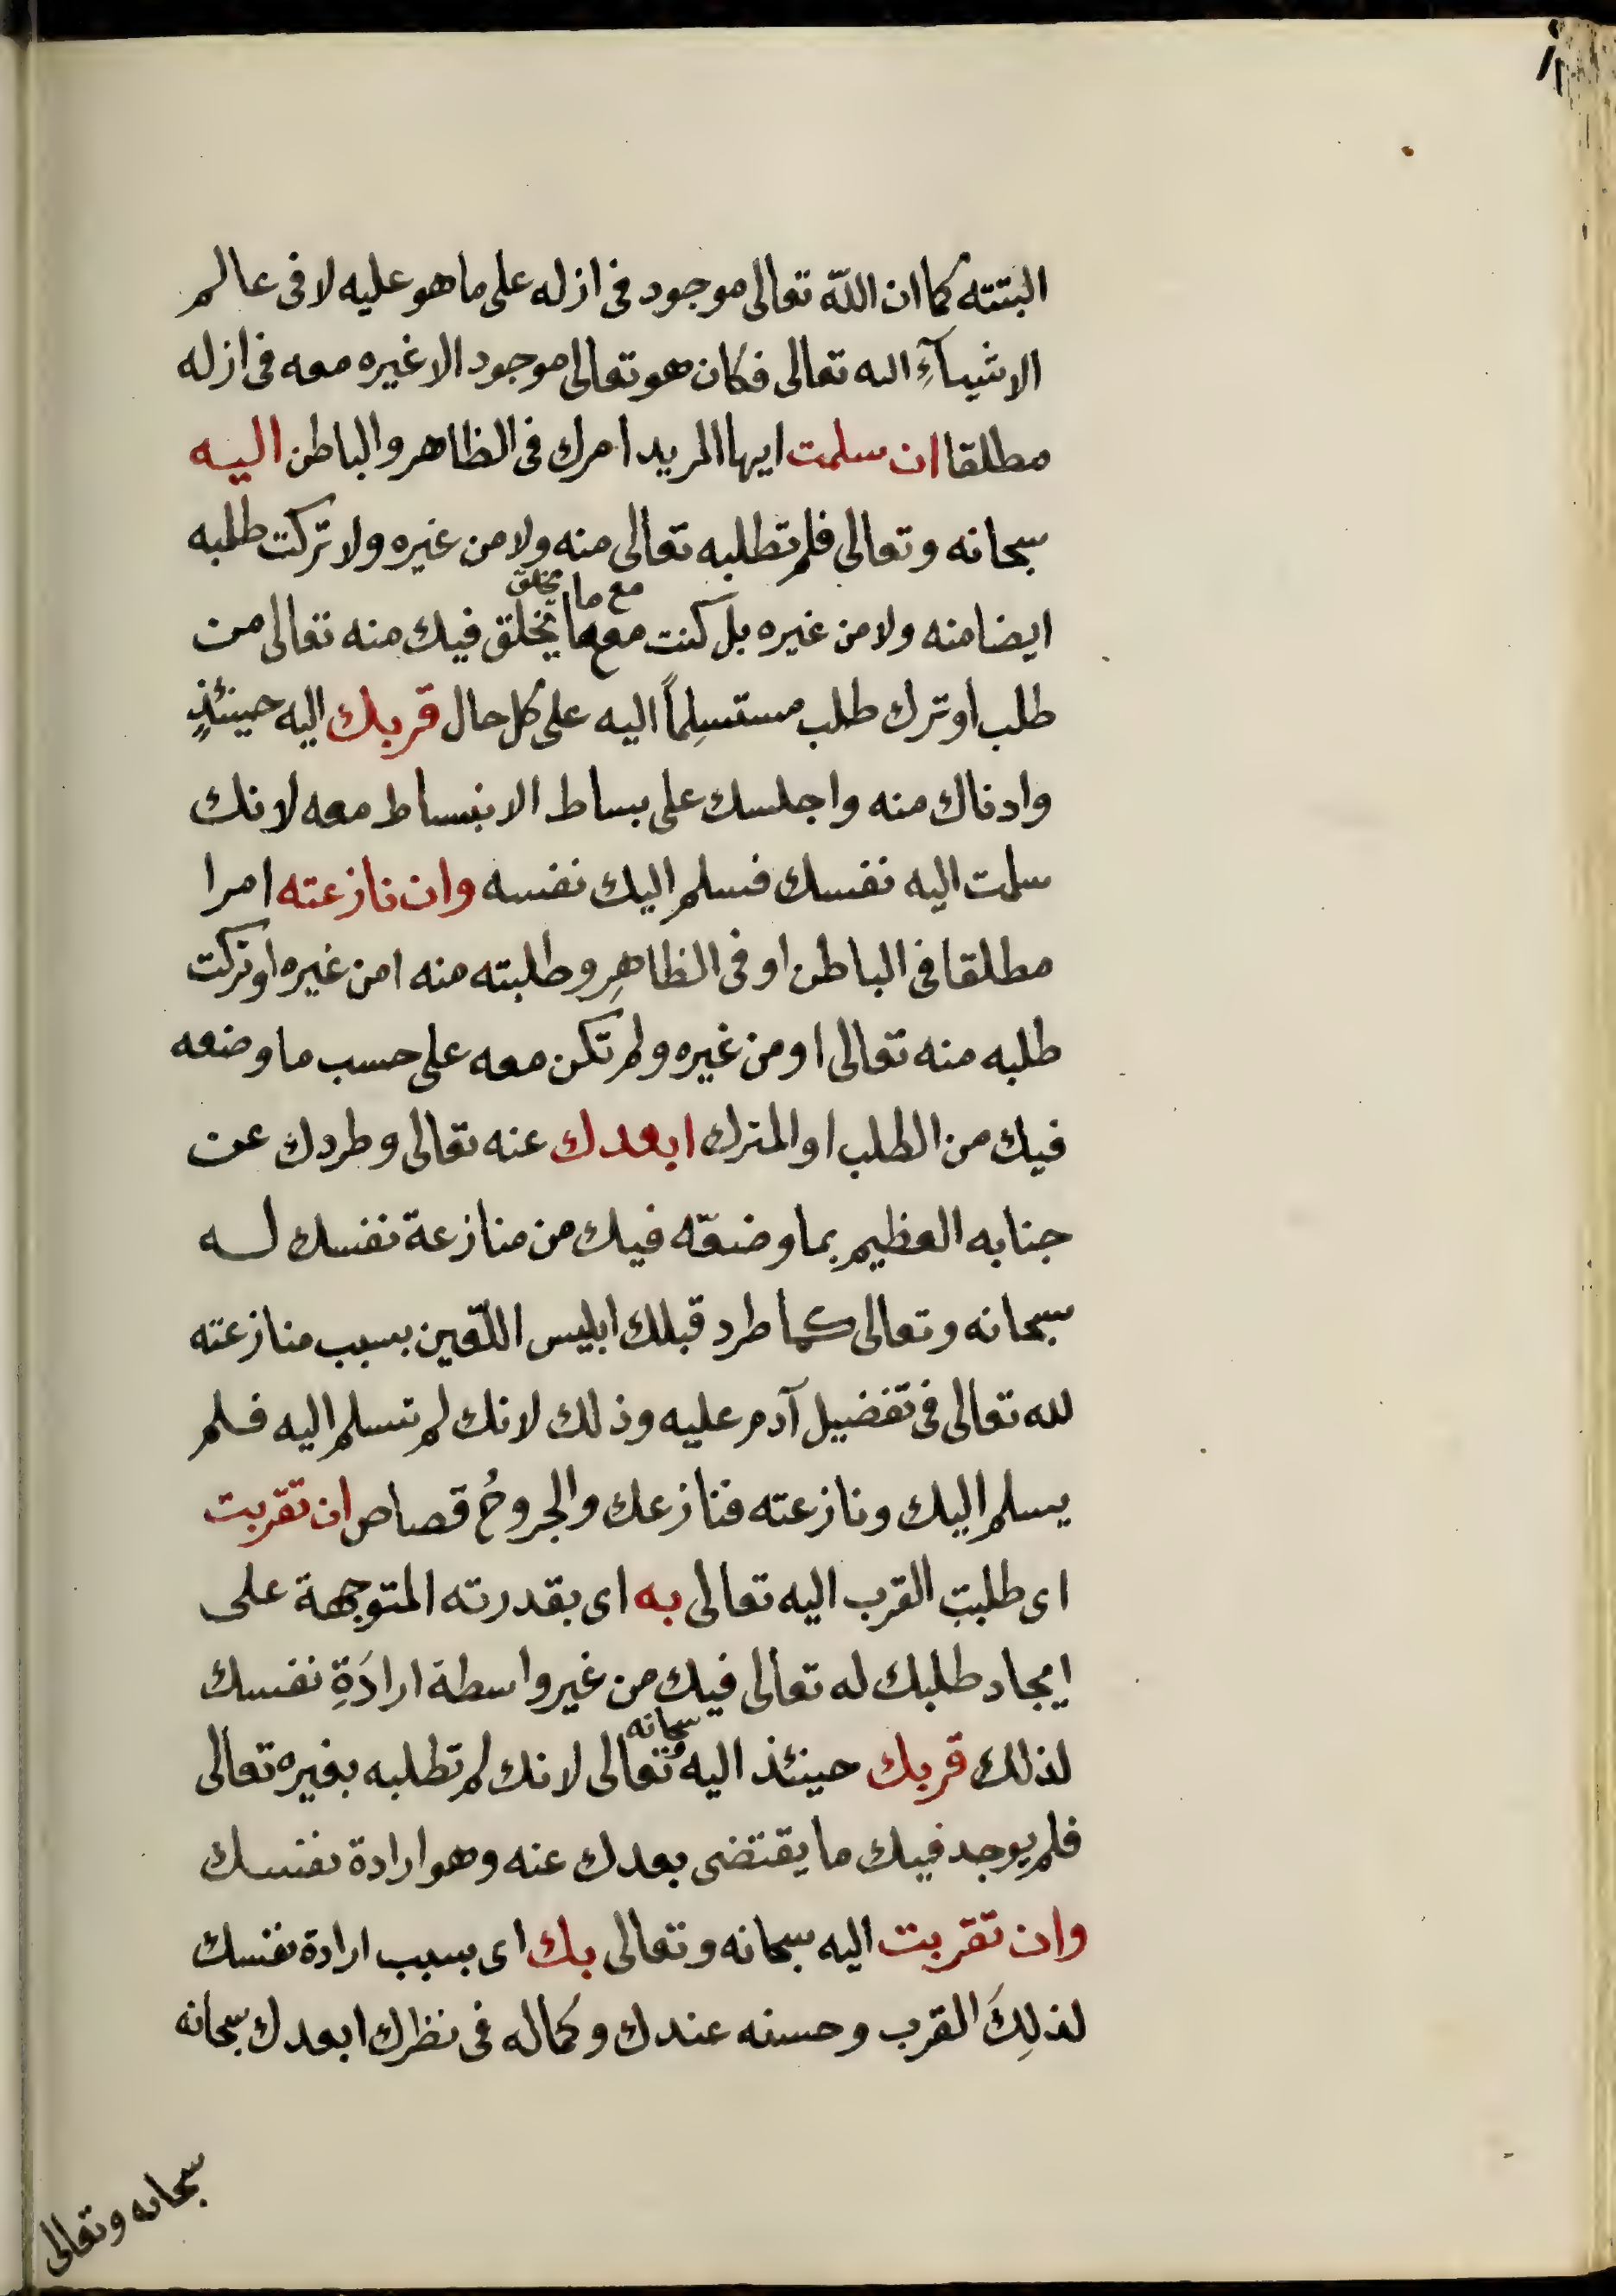 البتته كما ان الله تعالى موجود فى ازله على ما هو عليه لا فى عالم
الاشيآءِ اله تعالى فكان هو تعالى موجود الا غيره معه فى ازله
مطلقا ان سلمت ايها المريد امرك فى الظاهر والباطن اليه
سبحانه وتعالى فلم تطلبه تعالى منه ولا من غيره ولا تركت طلبه
مع ما يخلق
ايضا منه ولا من غيره بل كنت مع ما يخلق فيك منه تعالى من
طلب او ترك طلب مستسلِماً اليه على كل حال قربك اليه حينئذٍ
وادناك منه واجلسك على بساط الانبساط معه لانك
سلمت اليه نفسك فسلم اليك نفسه وان نازعته امرا
مطلقا فى الباطن او فى الظاهِر وطلبته منه امن غيره او تركت
طلبه منه تعالى او من غيره ولم تكن معه على حسب ما وضعه
فيك من الطلب او الترك ابعدك عنه تعالى وطردك عن
جنابه العظيم بما وضعه فيك من منازعة نفسك له
سبحانه وتعالى كما طرد قبلك ابليس اللّعين بسبب منازعته
لله تعالى فى تفضيل آدم عليه وذلك لانك لم تسلم اليه فلم
يسلم اليك ونازعته فنازعك والجروحُ قصاص ان تقربت
اى طلبت القرب اليه تعالى به اى بقدرته المتوجهة على
ايجاد طلبك له تعالى فيك من غير واسطة ارادَةِ نفسك
سبحانه
لذلك قربك حينئذ اليه وتعالى لانك لم تطلبه بغيره تعالى
فلم يوجد فيك ما يقتضى بعدك عنه وهو ارادة نفسك
وان تقربت اليه سبحانه وتعالى بك اى بسبب ارادة نفسك
لذلِكَ القرب وحسنه عندك وكماله فى نظرك ابعدك سبحانه
سبحانه وتعالى